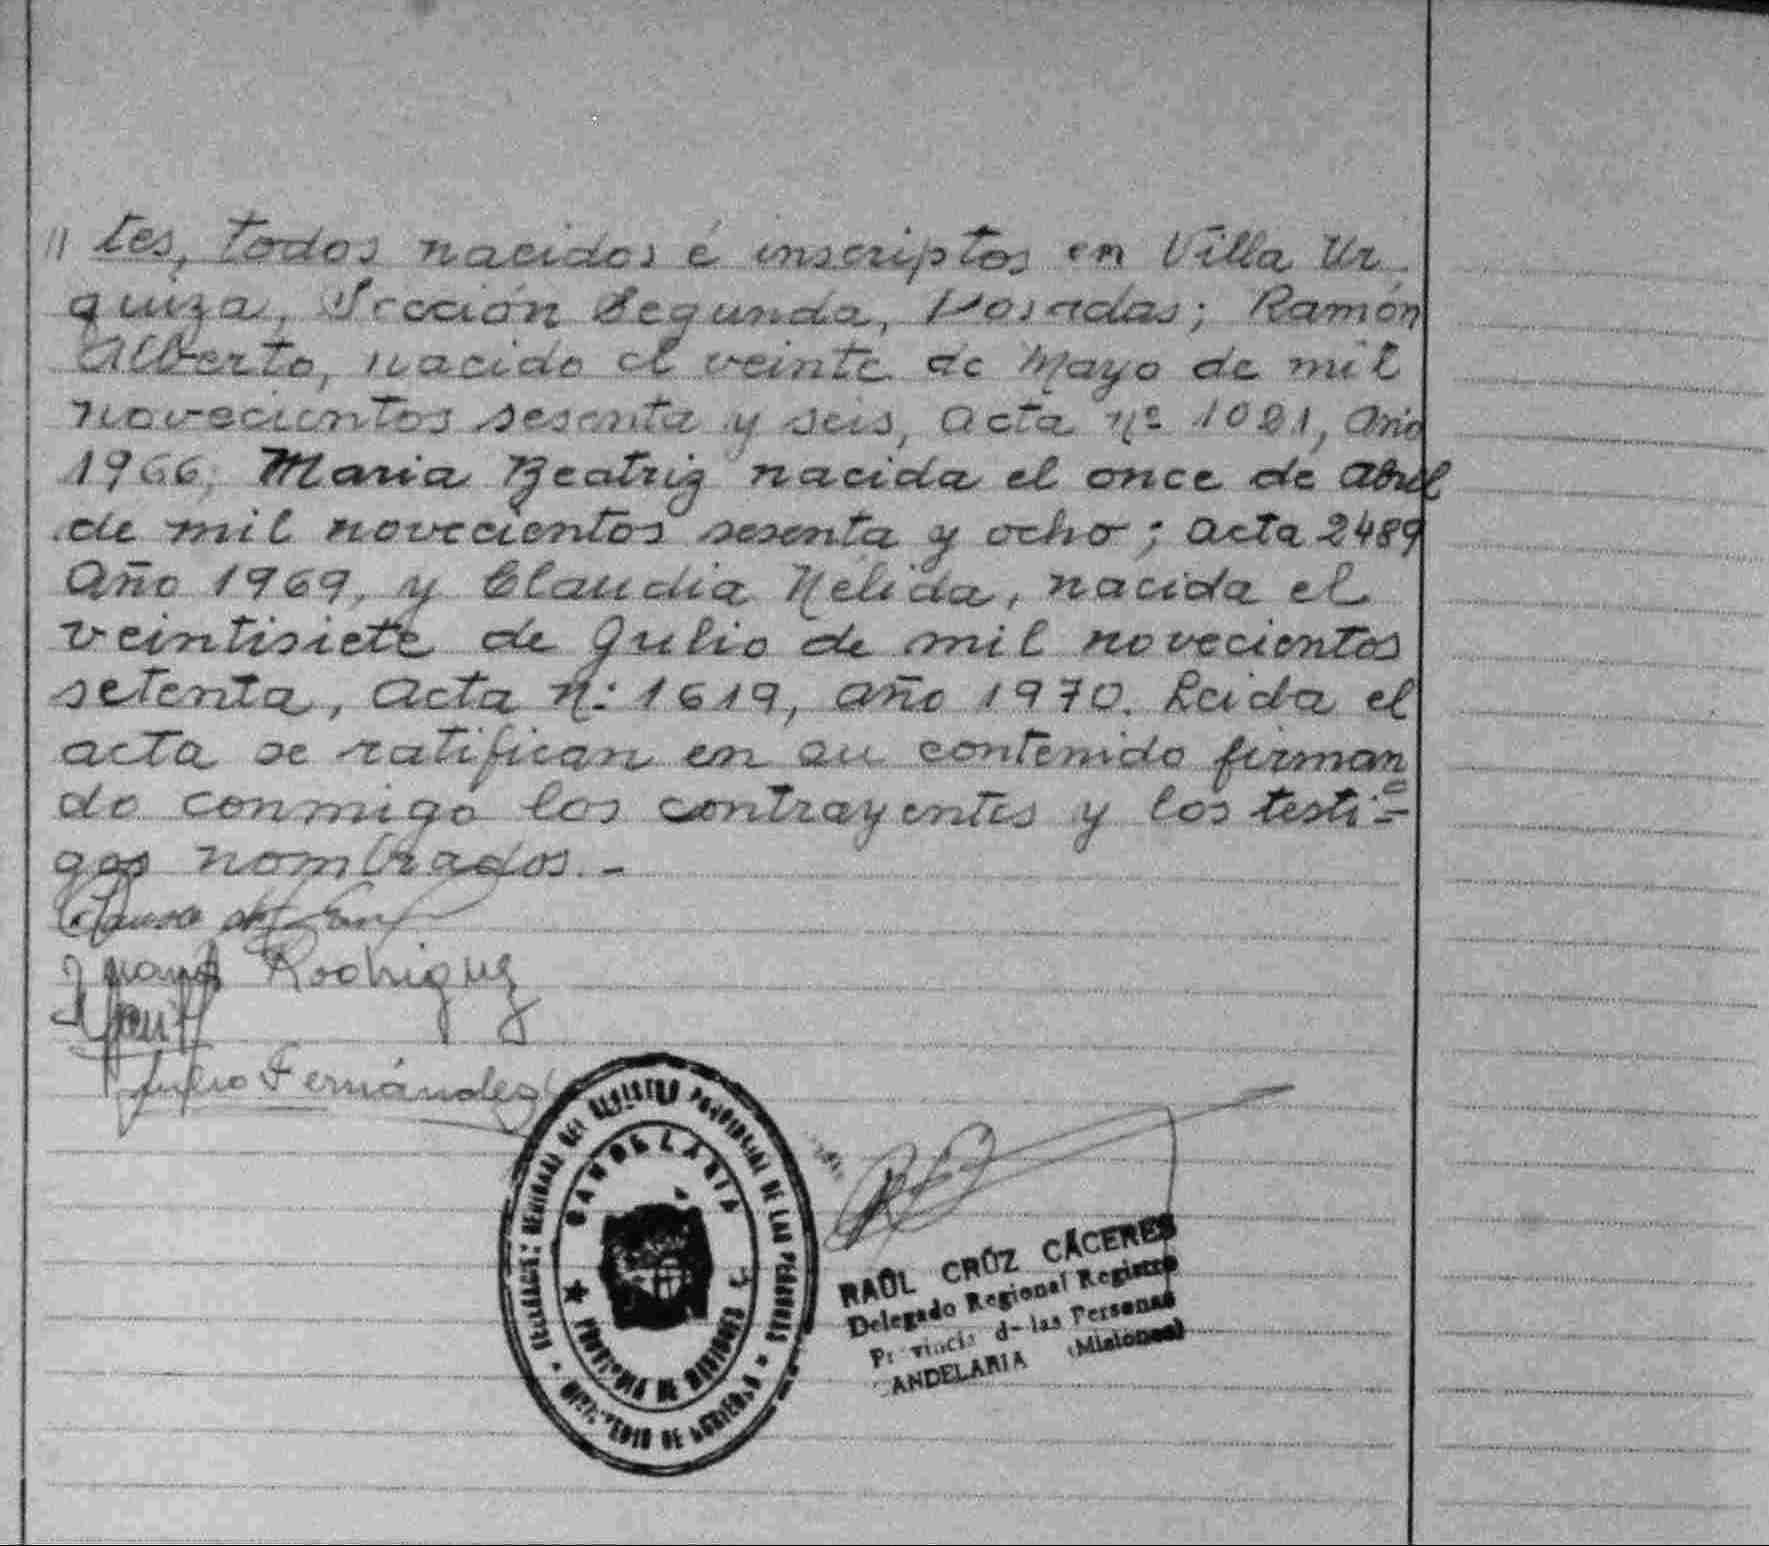 // tes, todos nacidos é inscriptos en Villa Ur
quiza, Sección Segunda, Posadas; Ramón
Alberto, nacido el veinte de Mayo de mil
novecientos sesenta y seis, acta nº 1021, año
1966; Maria Beatriz nacida el once de abril
de mil novecientos sesenta y ocho; acta 2489
año 1969, y Claudia Nélida, nacida el
veintisiete de Julio de mil novecientos
setenta, acta n: 1619, año 1970. Leida el
acta se ratifican en su contenido firman
do conmigo los contrayentes y los testi=
gos nombrados.-
Rodriguez
Julio Fernández
DEL REGISTRO PROVINCIAL DE LAS PERSONAS
CANDELARIA
PROVINCIA DE MISIONES
MINISTERIO DE GOBIERNO
RAÚL CRÚZ CÁCERES
Delegado Regional Registro
d- las Personas
ANDELARIA (Misiones)